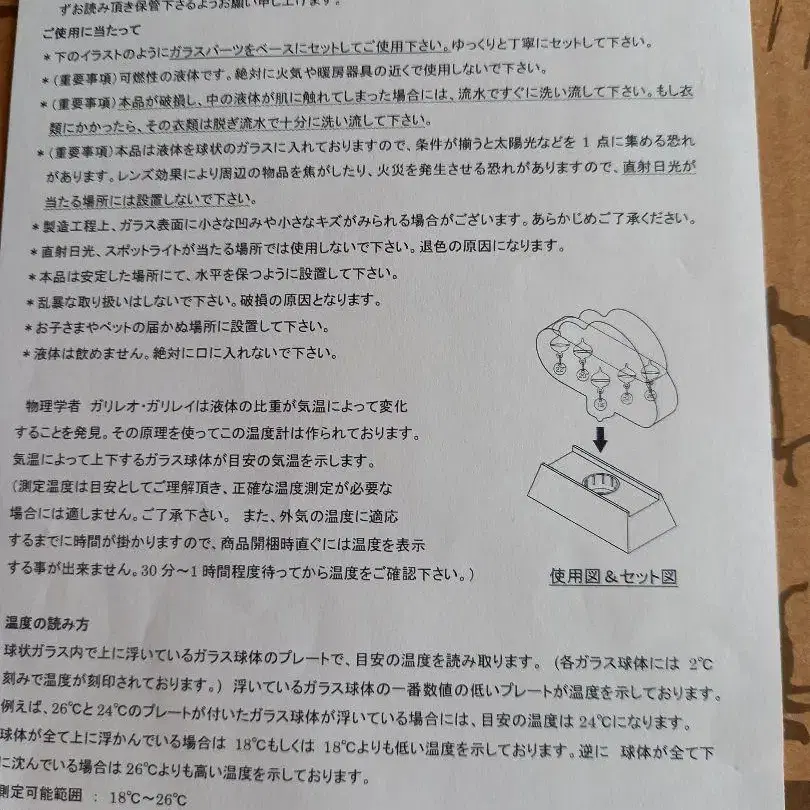 ずお読み頂き保管下さるようお願い申し上げます。
ご使用に当たって
＊下のイラストのようにガラスパーツをベースにセットしてご使用下さい。ゆっくりと丁寧にセットして下さい。
＊(重要事項)可燃性の液体です。絶対に火気や暖房器具の近くで使用しないで下さい。
＊(重要事項)本品が破損し、中の液体が肌に触れてしまった場合には、流水ですぐに洗い流して下さい。もし衣
類にかかったら、その衣類は脱ぎ流水で十分に洗い流して下さい。
＊(重要事項)本品は液体を球状のガラスに入れておりますので、条件が揃うと太陽光などを１点に集める恐れ
があります。レンズ効果により周辺の物品を焦がしたり、火災を発生させる恐れがありますので、直射日光が
当たる場所には設置しないで下さい。
＊製造工程上、ガラス表面に小さな凹みや小さなキズがみられる場合がございます。あらかじめご了承ください。
＊直射日光、スポットライトが当たる場所では使用しないで下さい。退色の原因になります。
＊本品は安定した場所にて、水平を保つように設置して下さい。
＊乱暴な取り扱いはしないで下さい。破損の原因となります。
＊お子さまやペットの届かぬ場所に設置して下さい。
＊液体は飲めません。絶対に口に入れないで下さい。
物理学者 ガリレオ・ガリレイは液体の比重が気温によって変化
することを発見。その原理を使ってこの温度計は作られております。
気温によって上下するガラス球体が目安の気温を示します。
(測定温度は目安としてご理解頂き、正確な温度測定が必要な
場合には適しません。ご了承下さい。 また、外気の温度に適応
するまでに時間が掛かりますので、商品開梱時直ぐには温度を表示
する事が出来ません。30分～1時間程度待ってから温度をご確認下さい。)
使用図＆セット図
温度の読み方
球状ガラス内で上に浮いているガラス球体のプレートで、目安の温度を読み取ります。 (各ガラス球体には 2℃
刻みで温度が刻印されております。) 浮いているガラス球体の一番数値の低いプレートが温度を示しております。
例えば、26℃と24℃のプレートが付いたガラス球体が浮いている場合には、目安の温度は24℃になります。
球体が全て上に浮かんでいる場合は 18℃もしくは 18℃よりも低い温度を示しております。逆に 球体が全て下
に沈んでいる場合は26℃よりも高い温度を示しております。
測定可能範囲 : 18℃～26℃